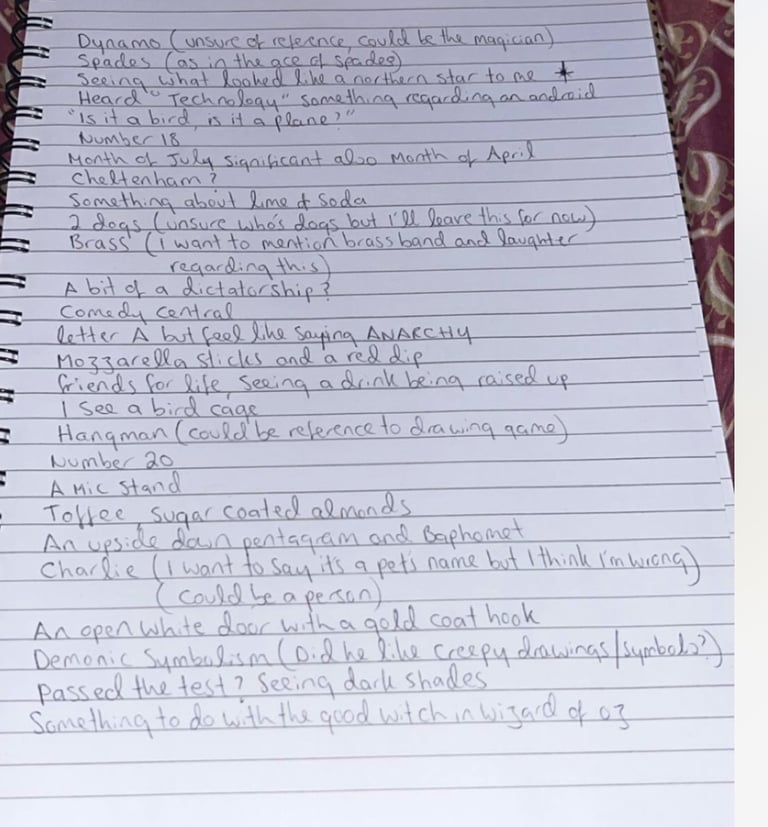 Dynamo (unsure of reference, could be the magician)
Spades (as in the ace of spades)
Seeing what looked like a northern star to me
Heard "Technology" something regarding an android
"Is it a bird, is it a plane?"
Number 18
Month of July significant also Month of April
Cheltenham?
Something about lime & Soda
2 dogs (unsure who's dogs but I'll leave this for now)
Brass (I want to mention brass band and laughter
regarding this)
A bit of a dictatorship?
Comedy central
letter A but feel like saying ANARCHY
Mozzarella sticks and a red dip
friends for life, seeing a drink being raised up
I see a bird cage
Hangman (could be reference to drawing game)
Number 20
A Mic Stand
Toffee, sugar coated almonds
An upside down pentagram and Baphomet
Charlie (I want to say it's a pet's name but I think I'm wrong)
(could be a person)
An open white door with a gold coat hook
Demonic Symbulism (Did he like creepy drawings/symbols?)
passed the test? Seeing dark shades
Something to do with the good witch in wizard of oz